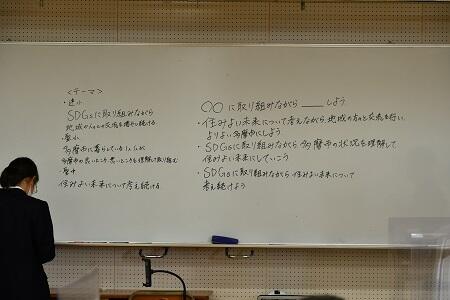 ＜テーマ＞
・連小
SDGsに取り組みながら
地域の人との交流を増やし続ける
・聖小
多摩市に暮らしている1人1人が
多摩市の良いところ、悪いところを理解して取り組む
・聖中
住みよい未来について考え続ける
〇〇に取り組みながら ___しよう
・住みよい未来について考えながら、地域の方と交流を行い、
よりよい多摩市にしよう
・SDGsに取り組みながら多摩市の状況を理解して
住みよい未来にしていこう
・SDGsに取り組みながら住みよい未来について
考え続けよう